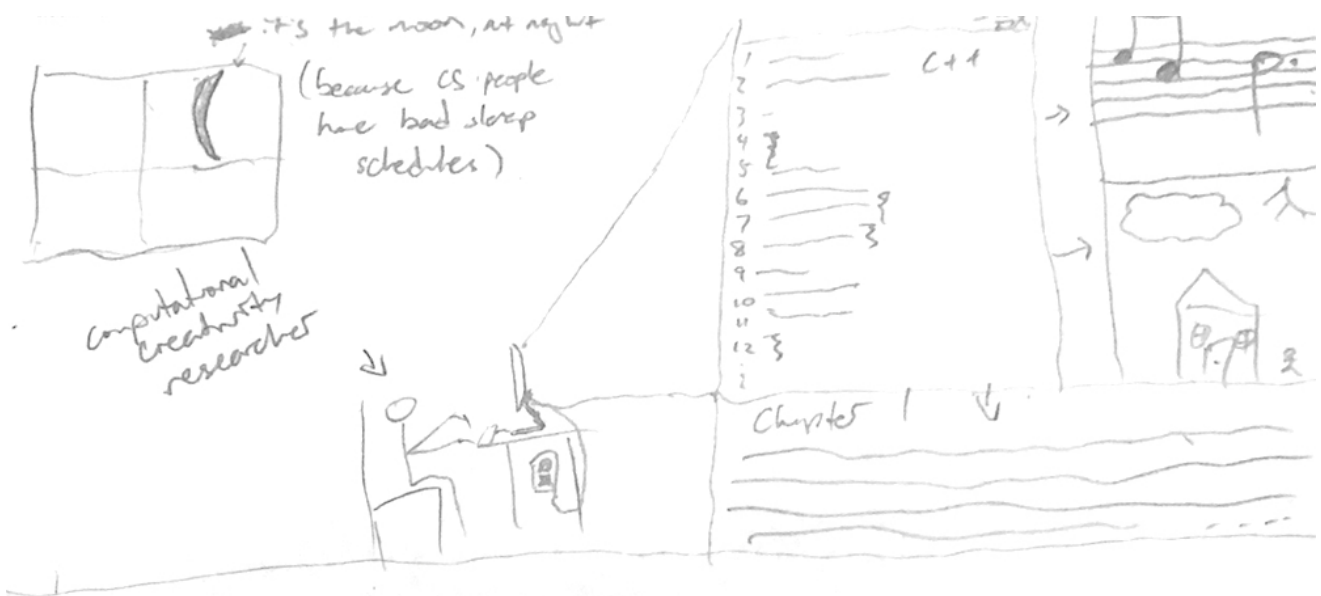 it's the moon, not night
(because CS people
have bad sleep
schedules)
computational
creativity
researcher
C++
1
2
3
4 }
5
6
7 {
8 }
9
10
11
12 }
Chapter 1